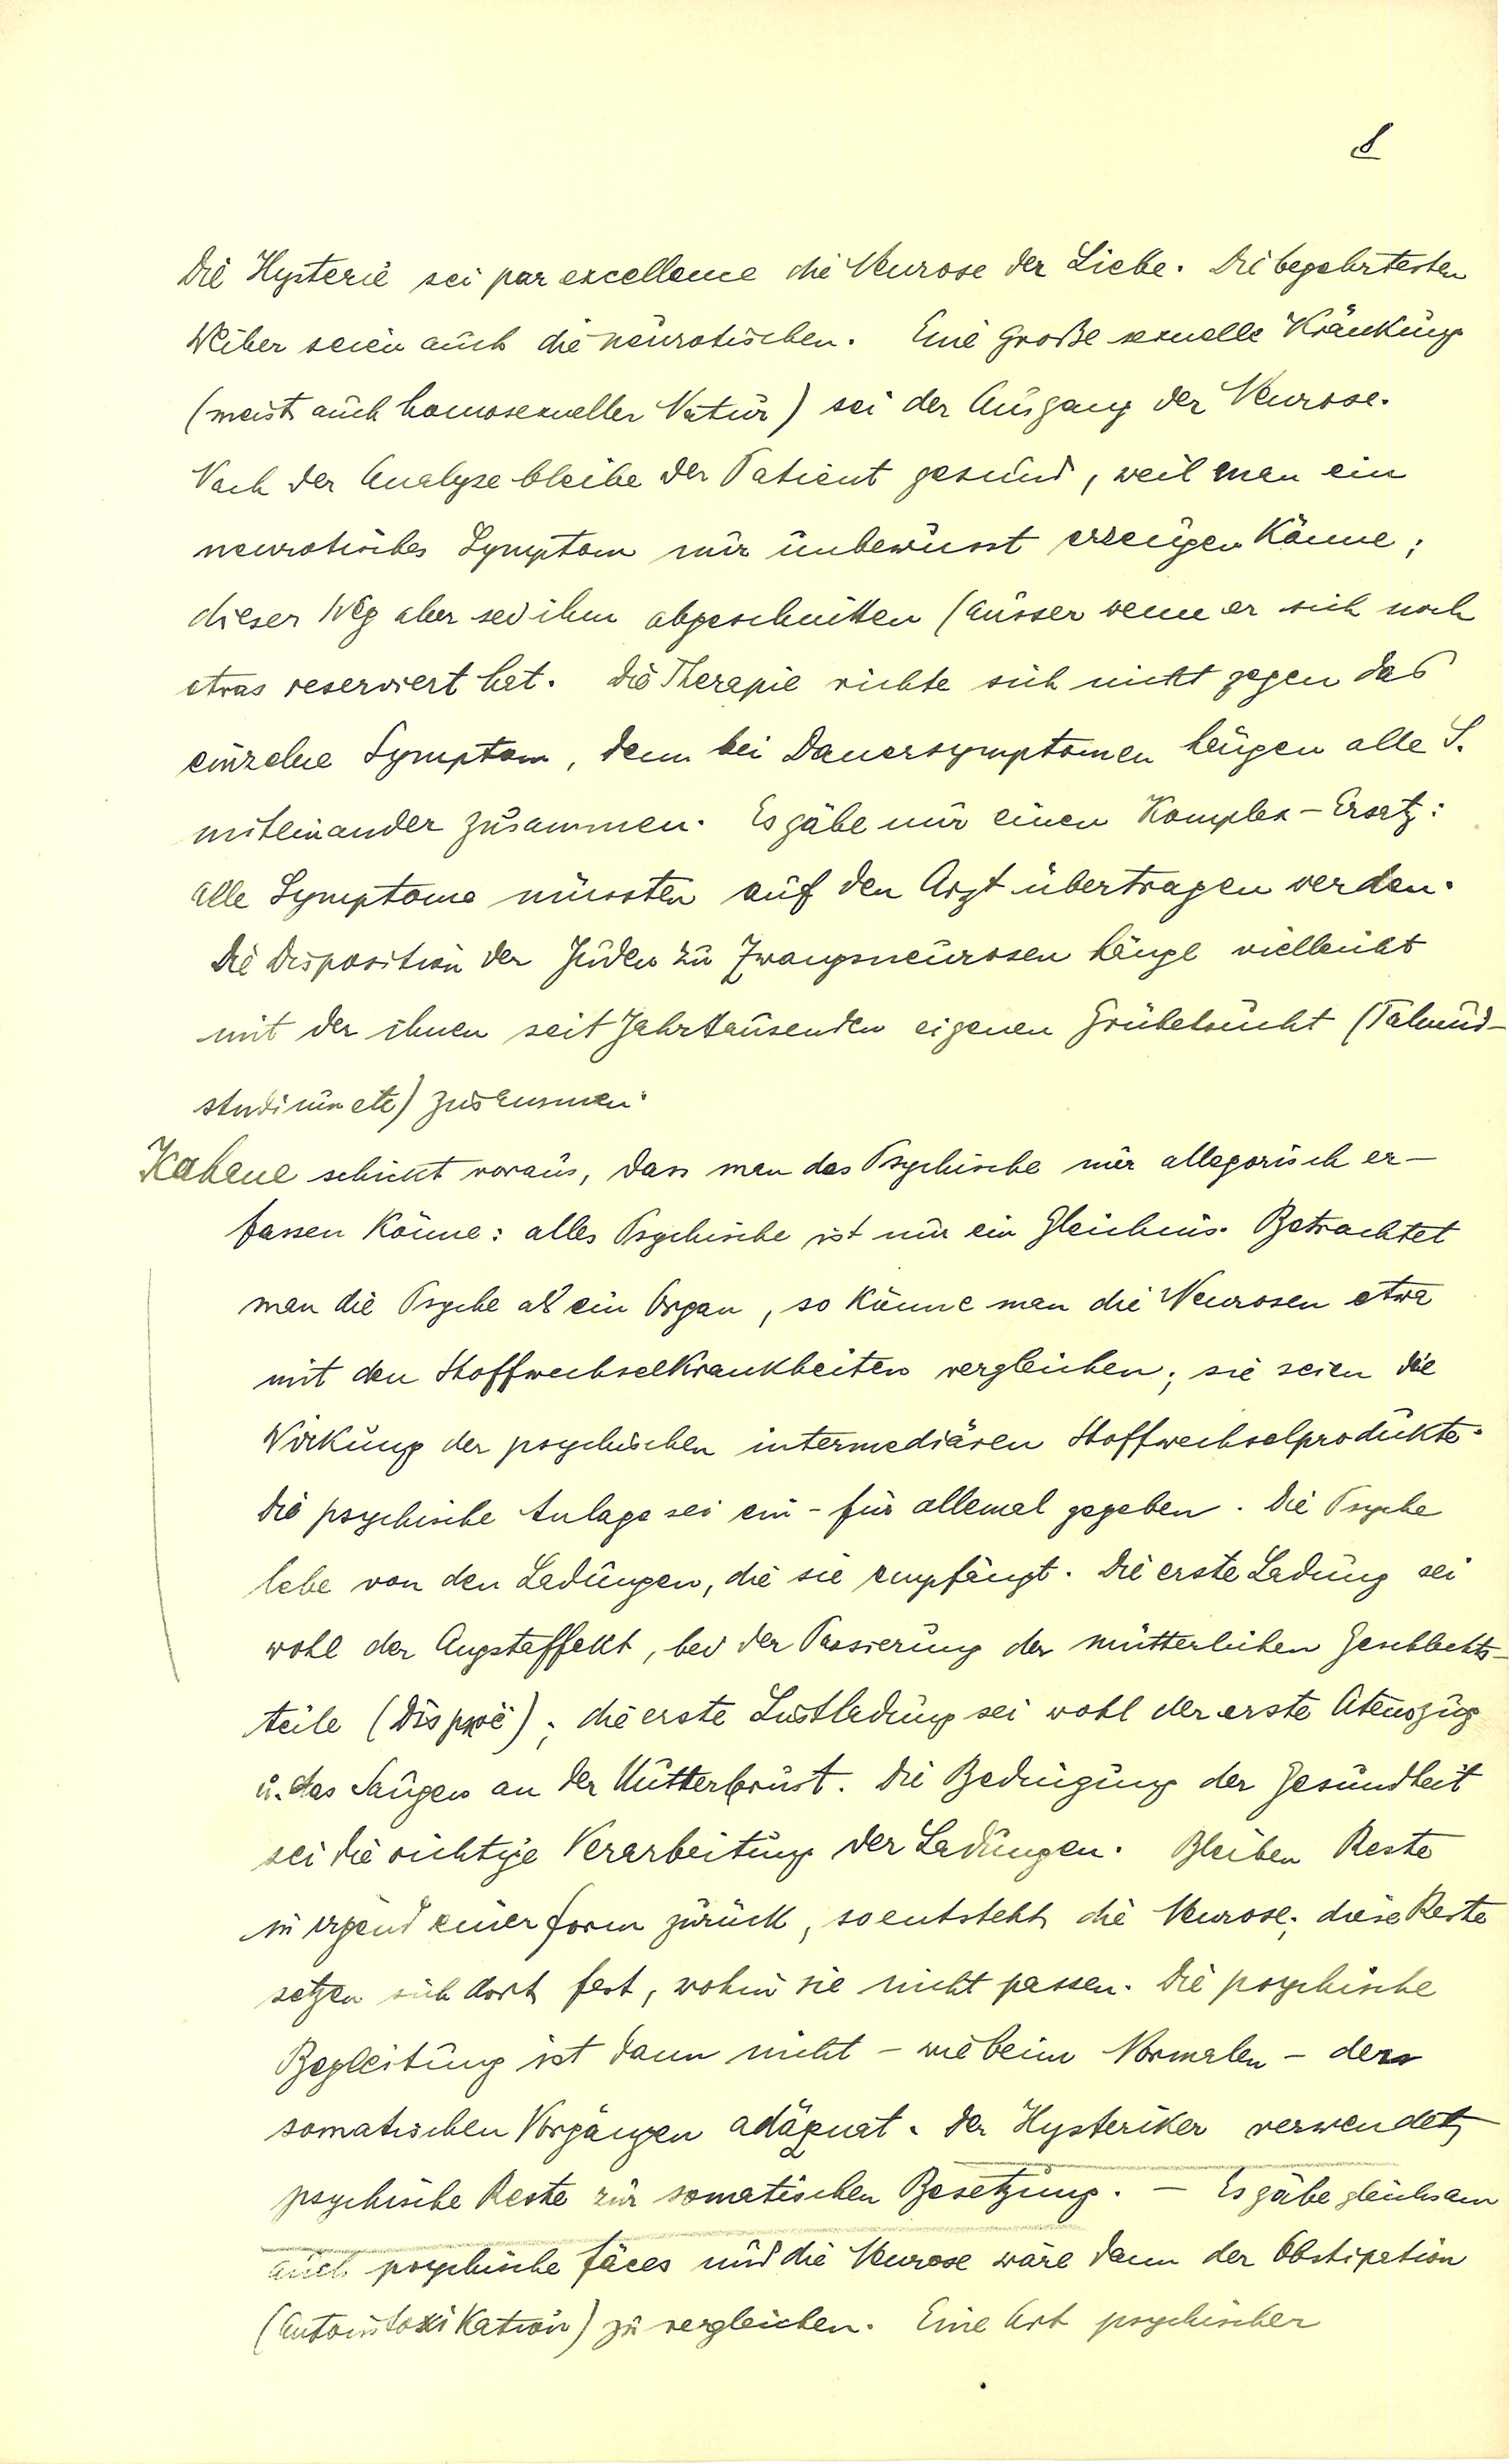 8
Die Hysterie sei par excellence die Neurose der Liebe. Die begehrtesten
Weiber seien auch die neurotischen. Eine große sexuelle Kränkung
(meist auch homosexueller Natur) sei der Ausgang der Neurose.
Nach der Analyse bleibe der Patient gesund, weil man ein
neurotisches Symptom nur unbewusst erzeugen könne;
dieser Weg aber sei ihm abgeschnitten (ausser wenn er sich noch
etwas reserviert hat. Die Therapie richte sich nicht gegen das
einzelne Symptom, denn bei Dauersymptomen hängen alle S.
miteinander zusammen. Es gäbe nur einen Komplex-Ersatz:
alle Symptome müssten auf den Arzt übertragen werden.
Die Disposition der Juden zu Zwangsneurosen hänge vielleicht
mit der ihnen seit Jahrtausenden eigenen Grübelsucht (Talmud-
studium etc) zusammen.
Kahane schickt voraus, dass man das Psychische nur allegorisch er-
fassen könne: alles Psychische ist nur ein Gleichnis. Betrachtet
man die Psyche als ein Organ, so könne man die Neurosen etwa
mit den Stoffwechselkrankheiten vergleichen; sie seien die
Wirkung der psychischen intermediären Stoffwechselprodukte.
Die psychische Anlage sei ein-für allemal gegeben. Die Psyche
lebe von den Ladungen, die sie empfängt. Die erste Ladung sei
wohl der Angsteffekt, bei der Passierung der mütterlichen Geschlechts-
teile (Dispnoë); die erste Lustladung sei wohl der erste Atemzug
u. das Saugen an der Mutterbrust. Die Bedingung der Gesundheit
sei die richtige Verarbeitung der Ladungen. Bleiben Reste
in irgend einer Form zurück, so entsteht die Neurose; diese Reste
setzen sich dort fest, wohin sie nicht passen. Die psychische
Begleitung ist dann nicht - wie beim Normalen - den
somatischen Vorgängen adäquat. Der Hysteriker verwendet
psychische Reste zur somatischen Besetzung. — Es gäbe gleichsam
auch psychische Fäces und die Neurose wäre dann der Obstipation
(Autointoxikation) zu vergleichen. Eine Art psychischer